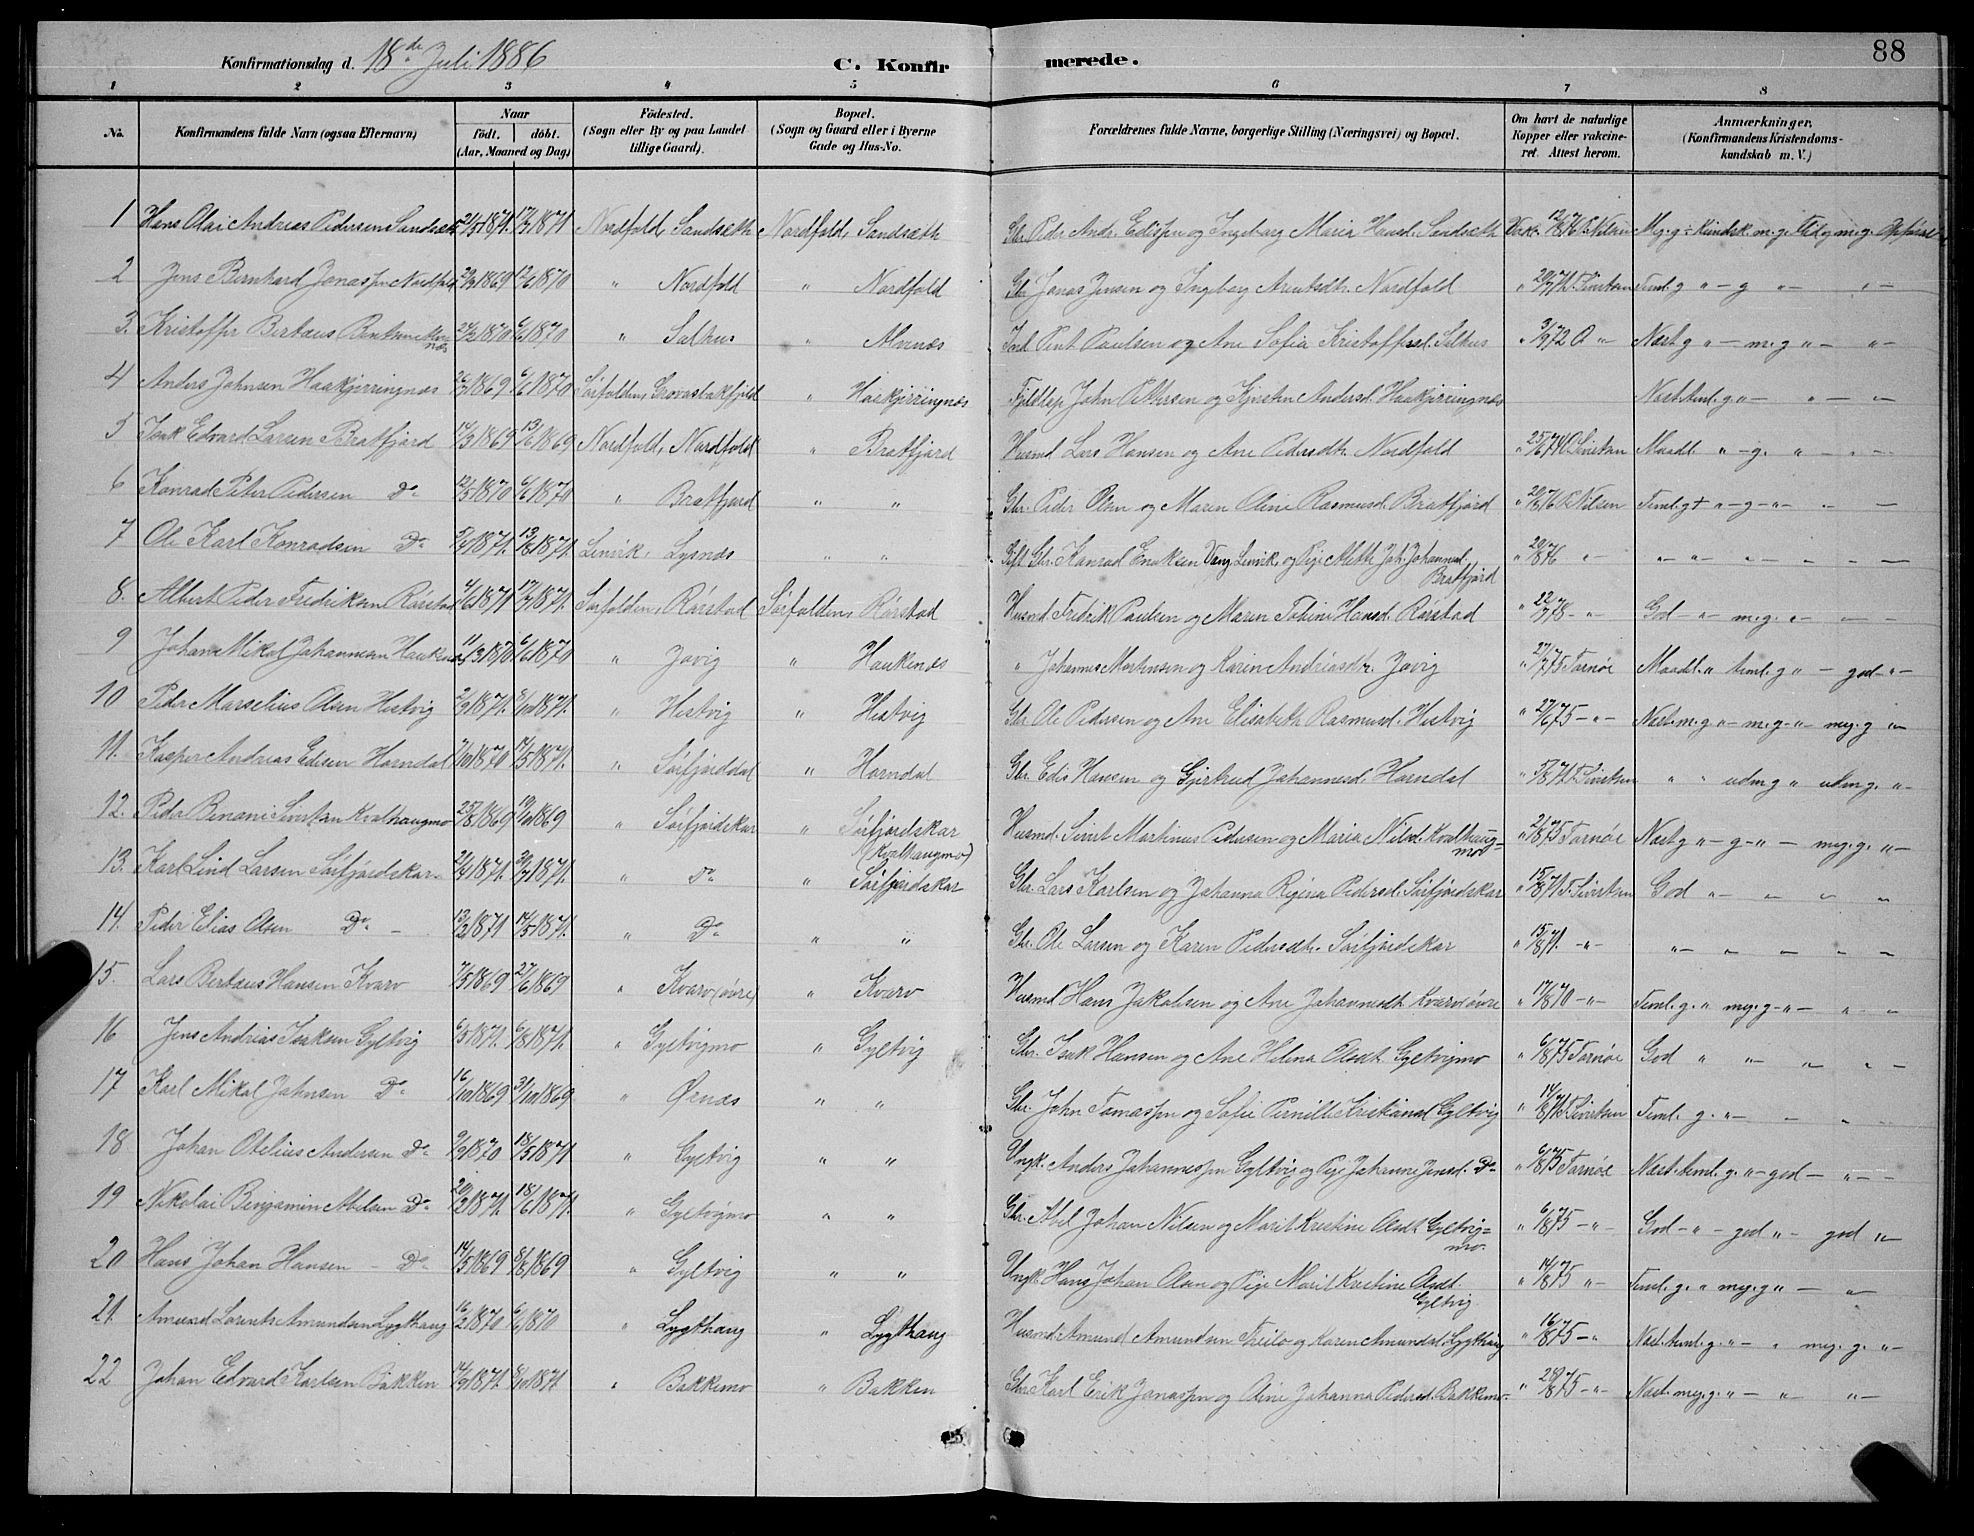 88
Konfirmationsdag d. 18de Juli 1886
C. Konfirmerede.
1 2 3 4 5 6 7 8
No. Konfirmandens fulde Navn (ogsaa Efternavn) Naar födt. döbt. (Aar, Maaned og Dag) Födested. (Sogn eller By og paa Landet tillige Gaard). Bopæl. (Sogn og Gaard eller i Byerne Gade og Hus-No. Forældrenes fulde Navne, borgerlige Stilling (Næringsvei) og Bopæl. Om havt de naturlige Kopper eller vakcineret. Attest herom. Anmærkninger, (Konfirmandens Kristendomskundskab m. V.)
1 Hans Olai Andreas Pedersen Sandsæth 1871 1871 Nordfold, Sandsæth Nordfold, Sandsæth Gbr. Peder Andr. Edispn og Ingeborg Maria Hansd. Sandsæth Vak. Nilsen Meg. g. Kundsk. m. g. Flid og m. g. Opførsel
2 Jens Bernhard Jonaspn Nordfold 1869 12/6 1870 " Nordfold " Nordfold Gbr Jonas Jensen og Ingeborg Arntsdtr. Nordfold " Sivertsen Teml. g " - g " - " -
3. Kristoffer Bertæus 1870 6/6 1870 " Salhus " Mvenæs Pent Paulsen og Ane Sofia Kristoffersd. Salhus " 3/9 72 " Næst g " - m. g " - " -
4 Anders Johnsen Haakjerringnæs 1869. 6/6 1870 Sørfolden, Grovasbakfjeld " Haakjerringnæs John Pettersen og Kjersten Andersd. Haakjerringnæs Næst teml. g " - " - " -
5 Isak Edvard Larsen Bratfjord 17/3 1869 13/6 1869 Nordfold, Nordfold " Bratfjord Husmd Lars Hansen og Ane Pedersdtr. Nordfold " 25/6 74 Sivertsen Maadl. " - g. " - " -
6 Konrad Peter Pedersen Do 12/5 1870 6/6 1870 " Bratfjord " " Gbr. Peder Olsen og Maren Oline Rasmusd. Bratfjord " Nilsen Teml. g + " - g - " - " -
7 Ole Karl Konradsen Do 1871. 13/8 1871. Lenvik, Lysnæs " " Gift Gbr. Konrad Enoksen Vang Lenvik, og Pige Johannesd. Bratfjord " 20/8 76 " " - " - " - " -
8. Albert Peder Fredriksen Rørstad 4/6 1871 1871. Sørfolden, Rørstad Sørfolden, Rørstad Husmd. Fredrik Paulsen og Maren Tobine Hansd. Rørstad " 78 - " - God - " - m. g. " - " -
9 Johan Mikal Johannesen Haukenæs 11/3 1870 6/6 1870 " Jøvig " Haukenæs " Johannes Mortensen og Karen Andreasdtr. Jøvig " 27/7 75 Tarnøe Maadl. " teml. g " - god - " -
10 Peder Marselius Olsen Hestvig 1871. 8/10 1871. " Hestvig " Hestvig Gbr Ole Pedersen og Ane Elisabeth Rasmusd. Hestvig " 27/6 75 - " - Næst m. g " - m. g - " - meg. g " -
11. Kasper Andreas Edisen Horndal 7/10 1870 14/5 1871. " Sörfjorddal " Horndal Gbr. Edis Hansen og Gjertrud Johannesd. Horndal " Sivertsen " " udm g " udm g. " -
12. Peder Benoni Sivertsen Kvalhaugmo 25/8 1869 1869 " Sörfjordskar " Sörfjordskar (Kvalhaugmo) Husmd. Sivert Martinus Pedersen og Maria Nilsd. Kvalhaugmo " 75 Tarnøe Næst g " - g - " - meg. g. " -
13. Karl Lind Larsen Sörfjordskar 1871. 1871. " Do " Sörfjordskar Gbr. Lars Karlsen og Johanna Regina Pedersd. Sörfjordskar " 15/8 71 Sivertsen God " - " " "
14. Peder Elias Olsen Do 13/2 1871 14/5 1871. " Do " " Gbr. Ole Larsen og Karen Pedersdtr. Sörfjordskar " 15/8 71. - " - " - " " " -
15. Lars Bertæus Hansen Kvarv 7/5 1869 27/6 1869 " Kvarv (övre) " Kvarv Husmd Hans Jakobsen og Ane Johannesdtr. Kvarv övre " 17/8 70 - " - Teml. g. " meg. g - " - " "
16 Jens Andreas Isaksen Gyltvig 6/5 1871. 6/8 1871. " Gyltvigmo " Gyltvig Gbr. Isak Hansen og Ane Helena Olsdt. Gyltvigmo " 6/8 75 Tarnøe God " " " " -
17 Karl Mikal Johnsen Do 16/10 1869 31/10 1869 " Ørnæs " " Gbr. John Tomaspn og Sofie Pernille Kristiansd. Gyltvig " Sivertsen Teml. g. " - " " "
18 Johan Otelius Andersen Do 1870 18/5 1871 " Gyltvig " " Ungk. Anders Johannespn Gyltvig og Pige Johanne Jensd. Do " 6/8 75 Tarnøe Næst teml. g. " - god - " -
19 Nikolai Benjamin Abelsen Do 20/2 1871. 18/6 1871. " Gyltvigmo " " Gbr. Abel Johan Nilsen og Marit Kristine Olsdt. Gyltvigmo. " 6/8 75 - " - God - " - god " - god " -
20 Hans Johan Hansen - Do 14/5 1869 8/8 1869 " Gyltvig " " Ungk. Hans Johan Olsen og Pige Marit Kristine Olsdt. Gyltvig " 14/8 75 " - Teml. g. " meg. g " - "
21. Amund Lorents Amundsen Lygthaug 16/2 1870 6/6 1870 " Lygthaug " Lygthaug Husmd. Amund Amundsen og Karen Amundsd. Lygthaug " 16/8 75 - " Næst teml. g. " - " meg. g. " -
22 Johan Edvard Karlsen Bakken 1871. 8/10 1871 " Bakkemo " Bakken Gbr Karl Erik Jonaspn og Oline Johanna Pedersd. Bakkemo. " 75 - " - Næst meg. g. " - " " -
25